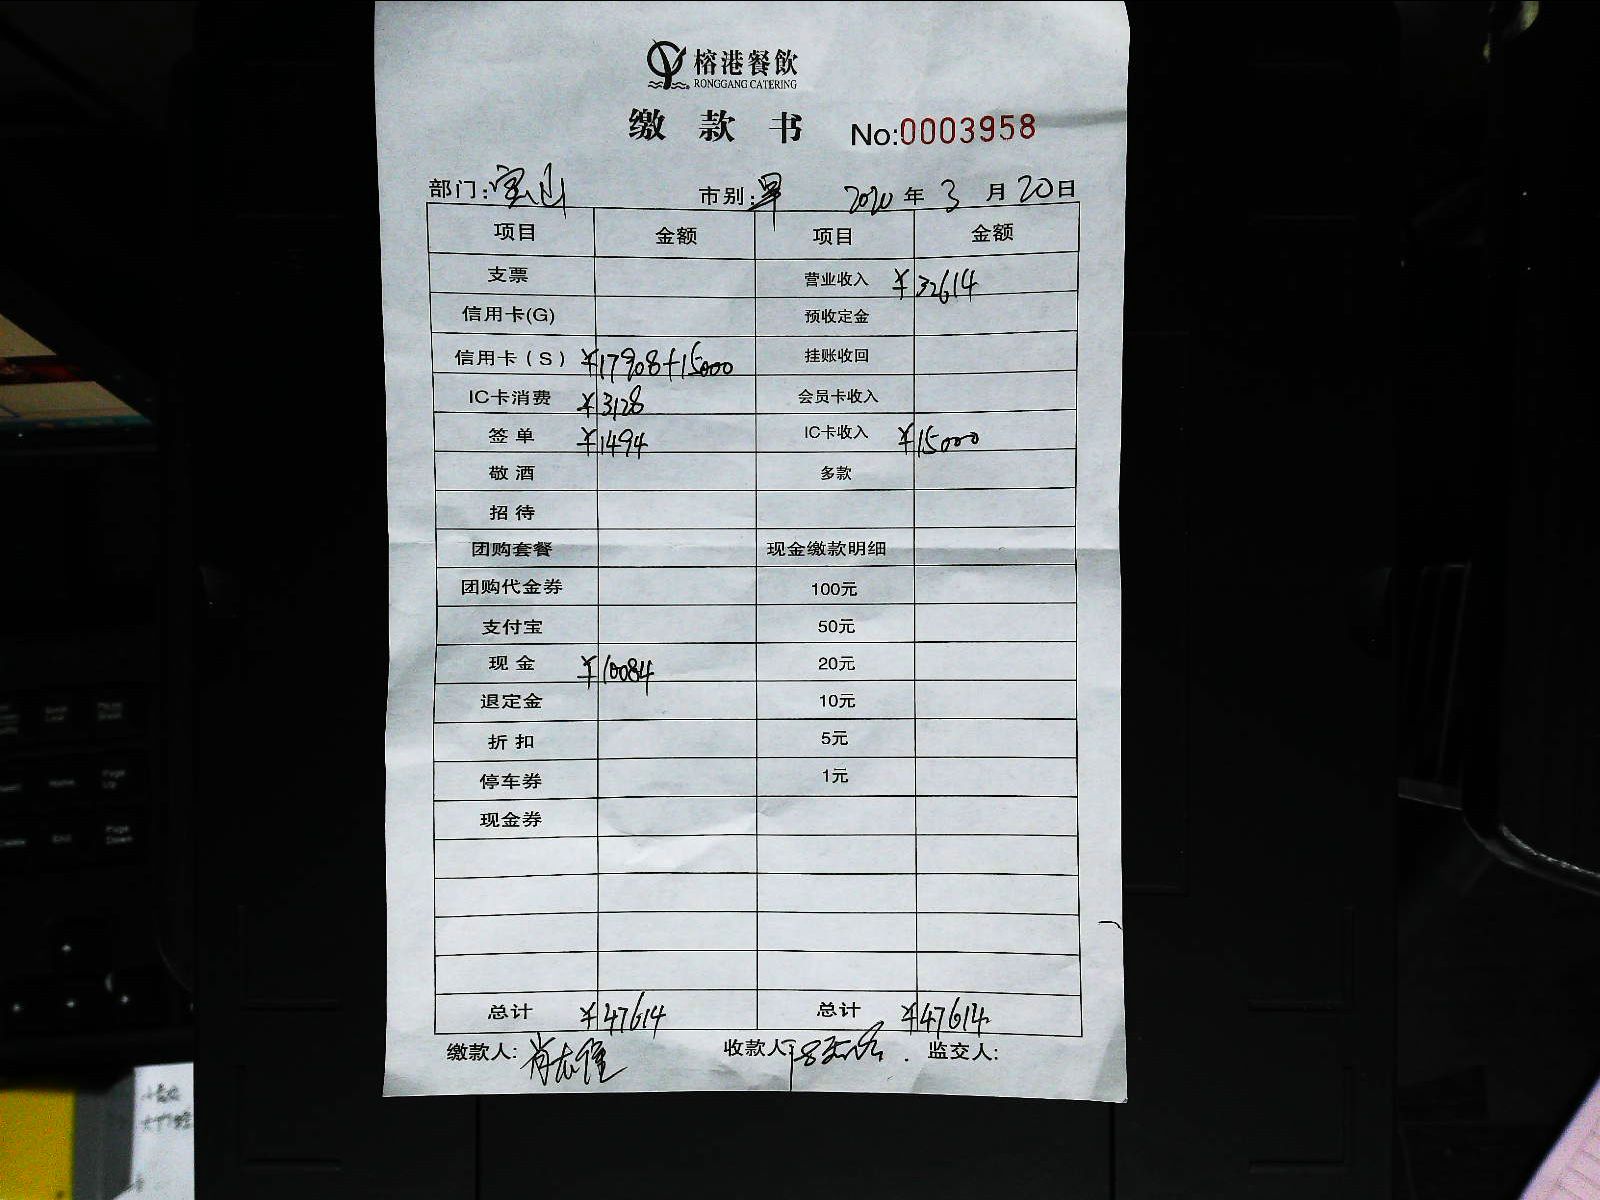 榕港餐飲
RONGGANG CATERING
缴款书 No:0003958
部门:宝山 市别:早 2020年3月20日
项目 金额 项目 金额
支票 营业收入 ¥32614
信用卡(G) 预收定金
信用卡(S) ¥17908+15000 挂账收回
IC卡消费 ¥3128 会员卡收入
签单 ¥1494 IC卡收入 ¥15000
敬酒 多款
招待
团购套餐 现金缴款明细
团购代金券 100元
支付宝 50元
现金 ¥10084 20元
退定金 10元
折扣 5元
停车券 1元
现金券
总计 ¥47614 总计 ¥47614
缴款人: 收款人: 监交人: